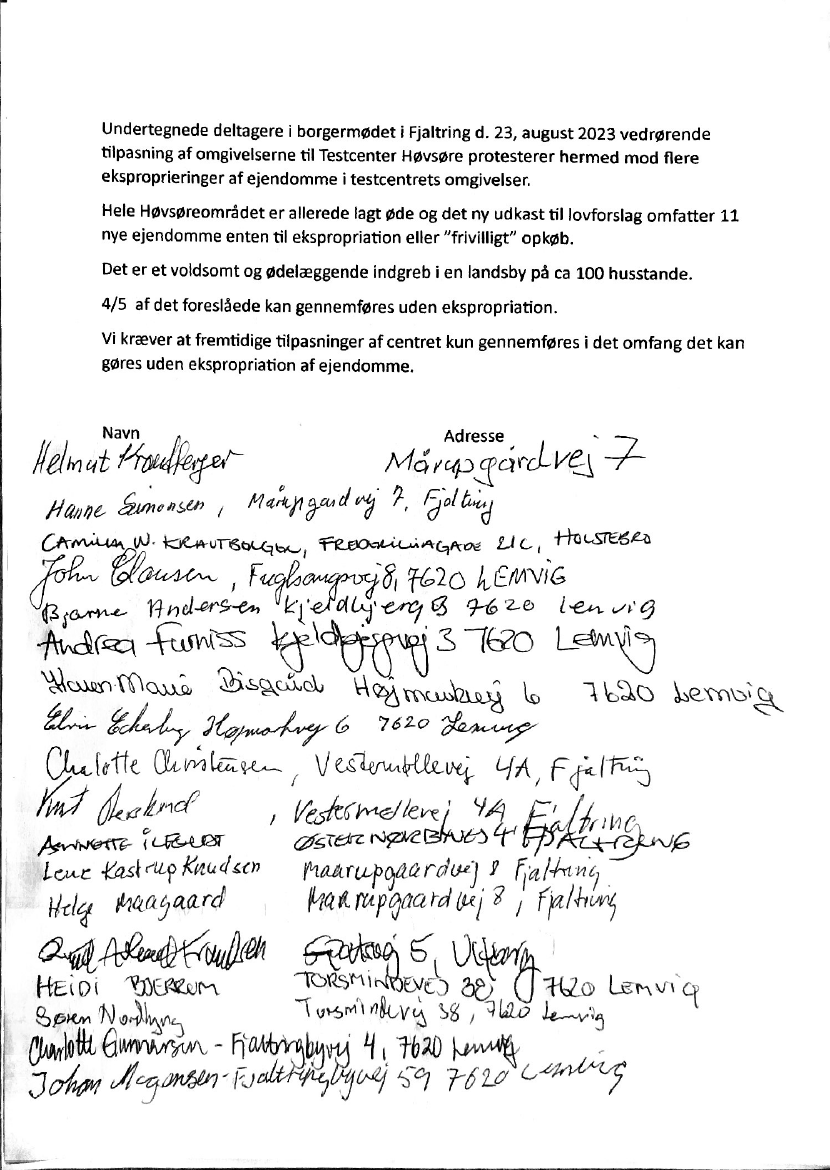 Undertegnede deltagere i borgermødet i Fjaltring d. 23, august 2023 vedrørende
tilpasning af omgivelserne til Testcenter Høvsøre protesterer hermed mod flere
eksproprieringer af ejendomme i testcentrets omgivelser.
Hele Høvsøreområdet er allerede lagt øde og det ny udkast til lovforslag omfatter 11
nye ejendomme enten til ekspropriation eller ”frivilligt” opkøb.
Det er et voldsomt og ødelæggende indgreb i en landsby på ca 100 husstande.
4/5 af det foreslåede kan gennemføres uden ekspropriation.
Vi kræver at fremtidige tilpasninger af centret kun gennemføres i det omfang det kan
gøres uden ekspropriation af ejendomme.
Navn Adresse
Helmut Mårupgårdvej 7
Hanne Simonsen, Mårupgardvej 7, Fjaltring
CAMILLA W. , 21C, HOLSTEBRO
John Clausen, Fuglsangsvej 8, 7620 LEMVIG
Bjarne Andersen 7620 Lemvig
Andrea Furniss 3 7620 Lemvig
Karen-Marie Bisgård Højmarkvej 6 7620 Lemvig
6 7620 Lemvig
Charlotte Christensen, Vestermøllevej 4A, Fjaltring
Knut , Vestermøllevej 4A Fjaltring
ANNETTE FJALTRING
Lene Kastrup Knudsen Maarupgaardvej 8 Fjaltring
Helge Maagaard Maarupgaardvej 8, Fjaltring
5,
HEIDI BJERRUM TORSMINDEVEJ 38, 7620 LEMVIG
Søren Nordbyng Torsmindevej 38, 7620 Lemvig
Charlotte Gunnarsen - Fjaltringbyvej 4, 7620 Lemvig
Johan Mogensen - Fjaltringbyvej 59 7620 Lemvig